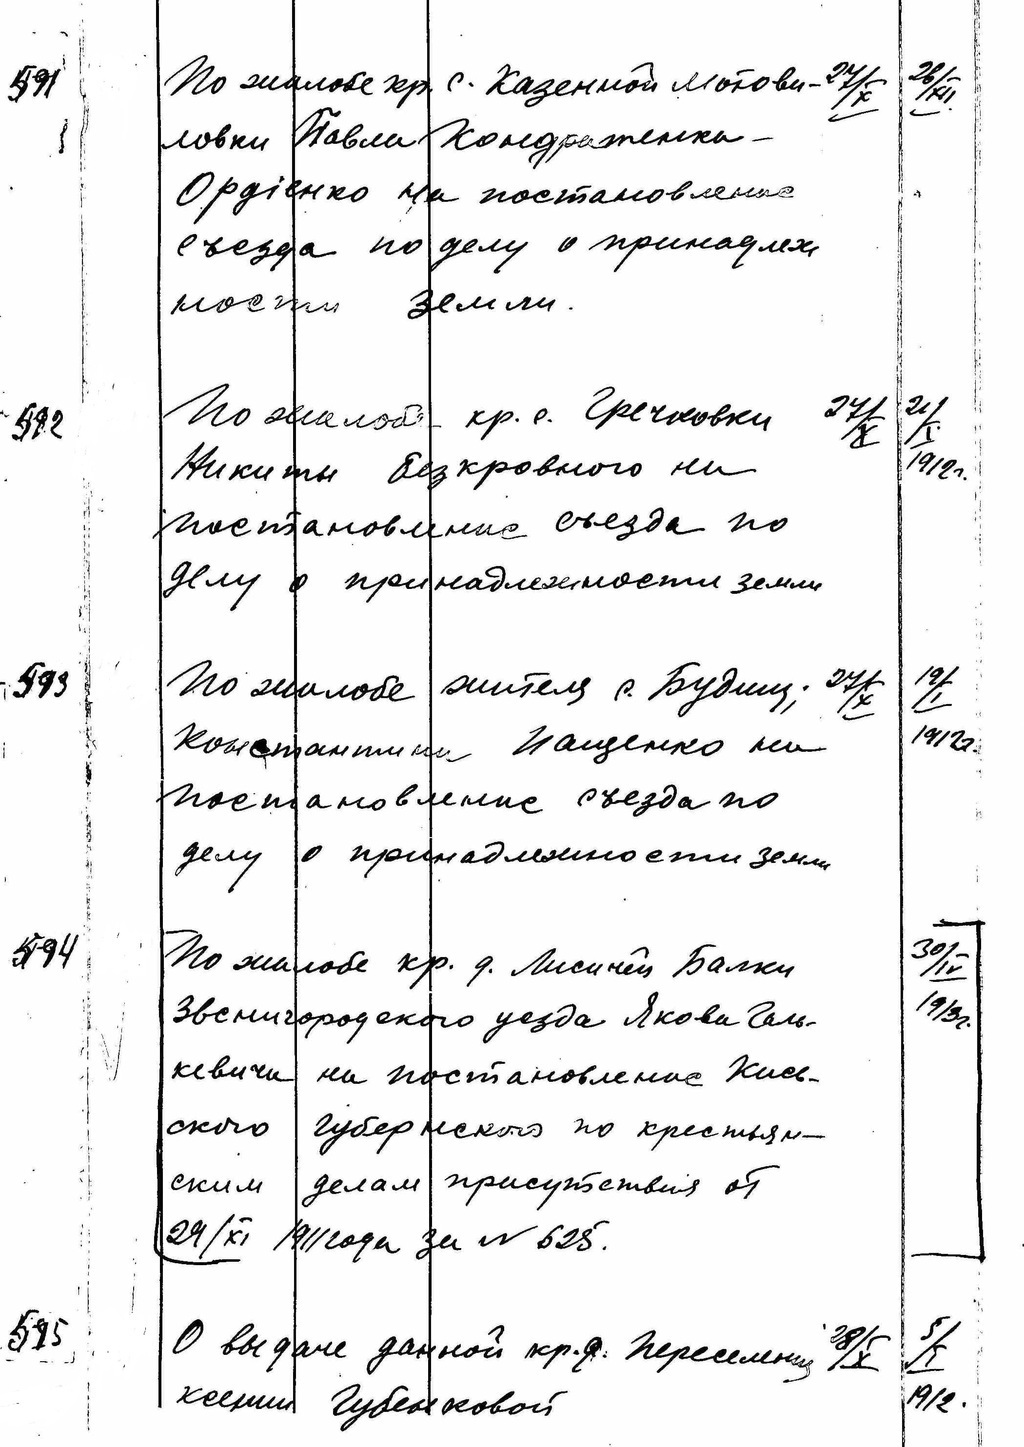 591 По жалобе кр. с. Казенной Мотови- 27/X 26/XII
ловки Павла Кондратенка-
Ордіенко на постановление
съезда по делу о принадлеж
ности земли.
592 По жалобе кр. с. Гречковки 27/X 21/X
Никиты Безкровного на 1912г.
постановление съезда по
делу о принадлежности земли
593 По жалобе жителя с. Будищ; 27/X 19/I
Константина Пащенко на 1912г.
постановление съезда по
делу о принадлежности земли
594 По жалобе кр. д. Лисичей Балки 30/IV
Звенигородского уезда Якова Галь- 1913г.
кевича на постановление Киев-
ского Губернского по крестьян-
ским делам присутствия от
29/XI 1911 года за N 625.
595 О выдаче данной кр. д. Переселениц 28/X 5/X
Ксении Губенковой 1912.